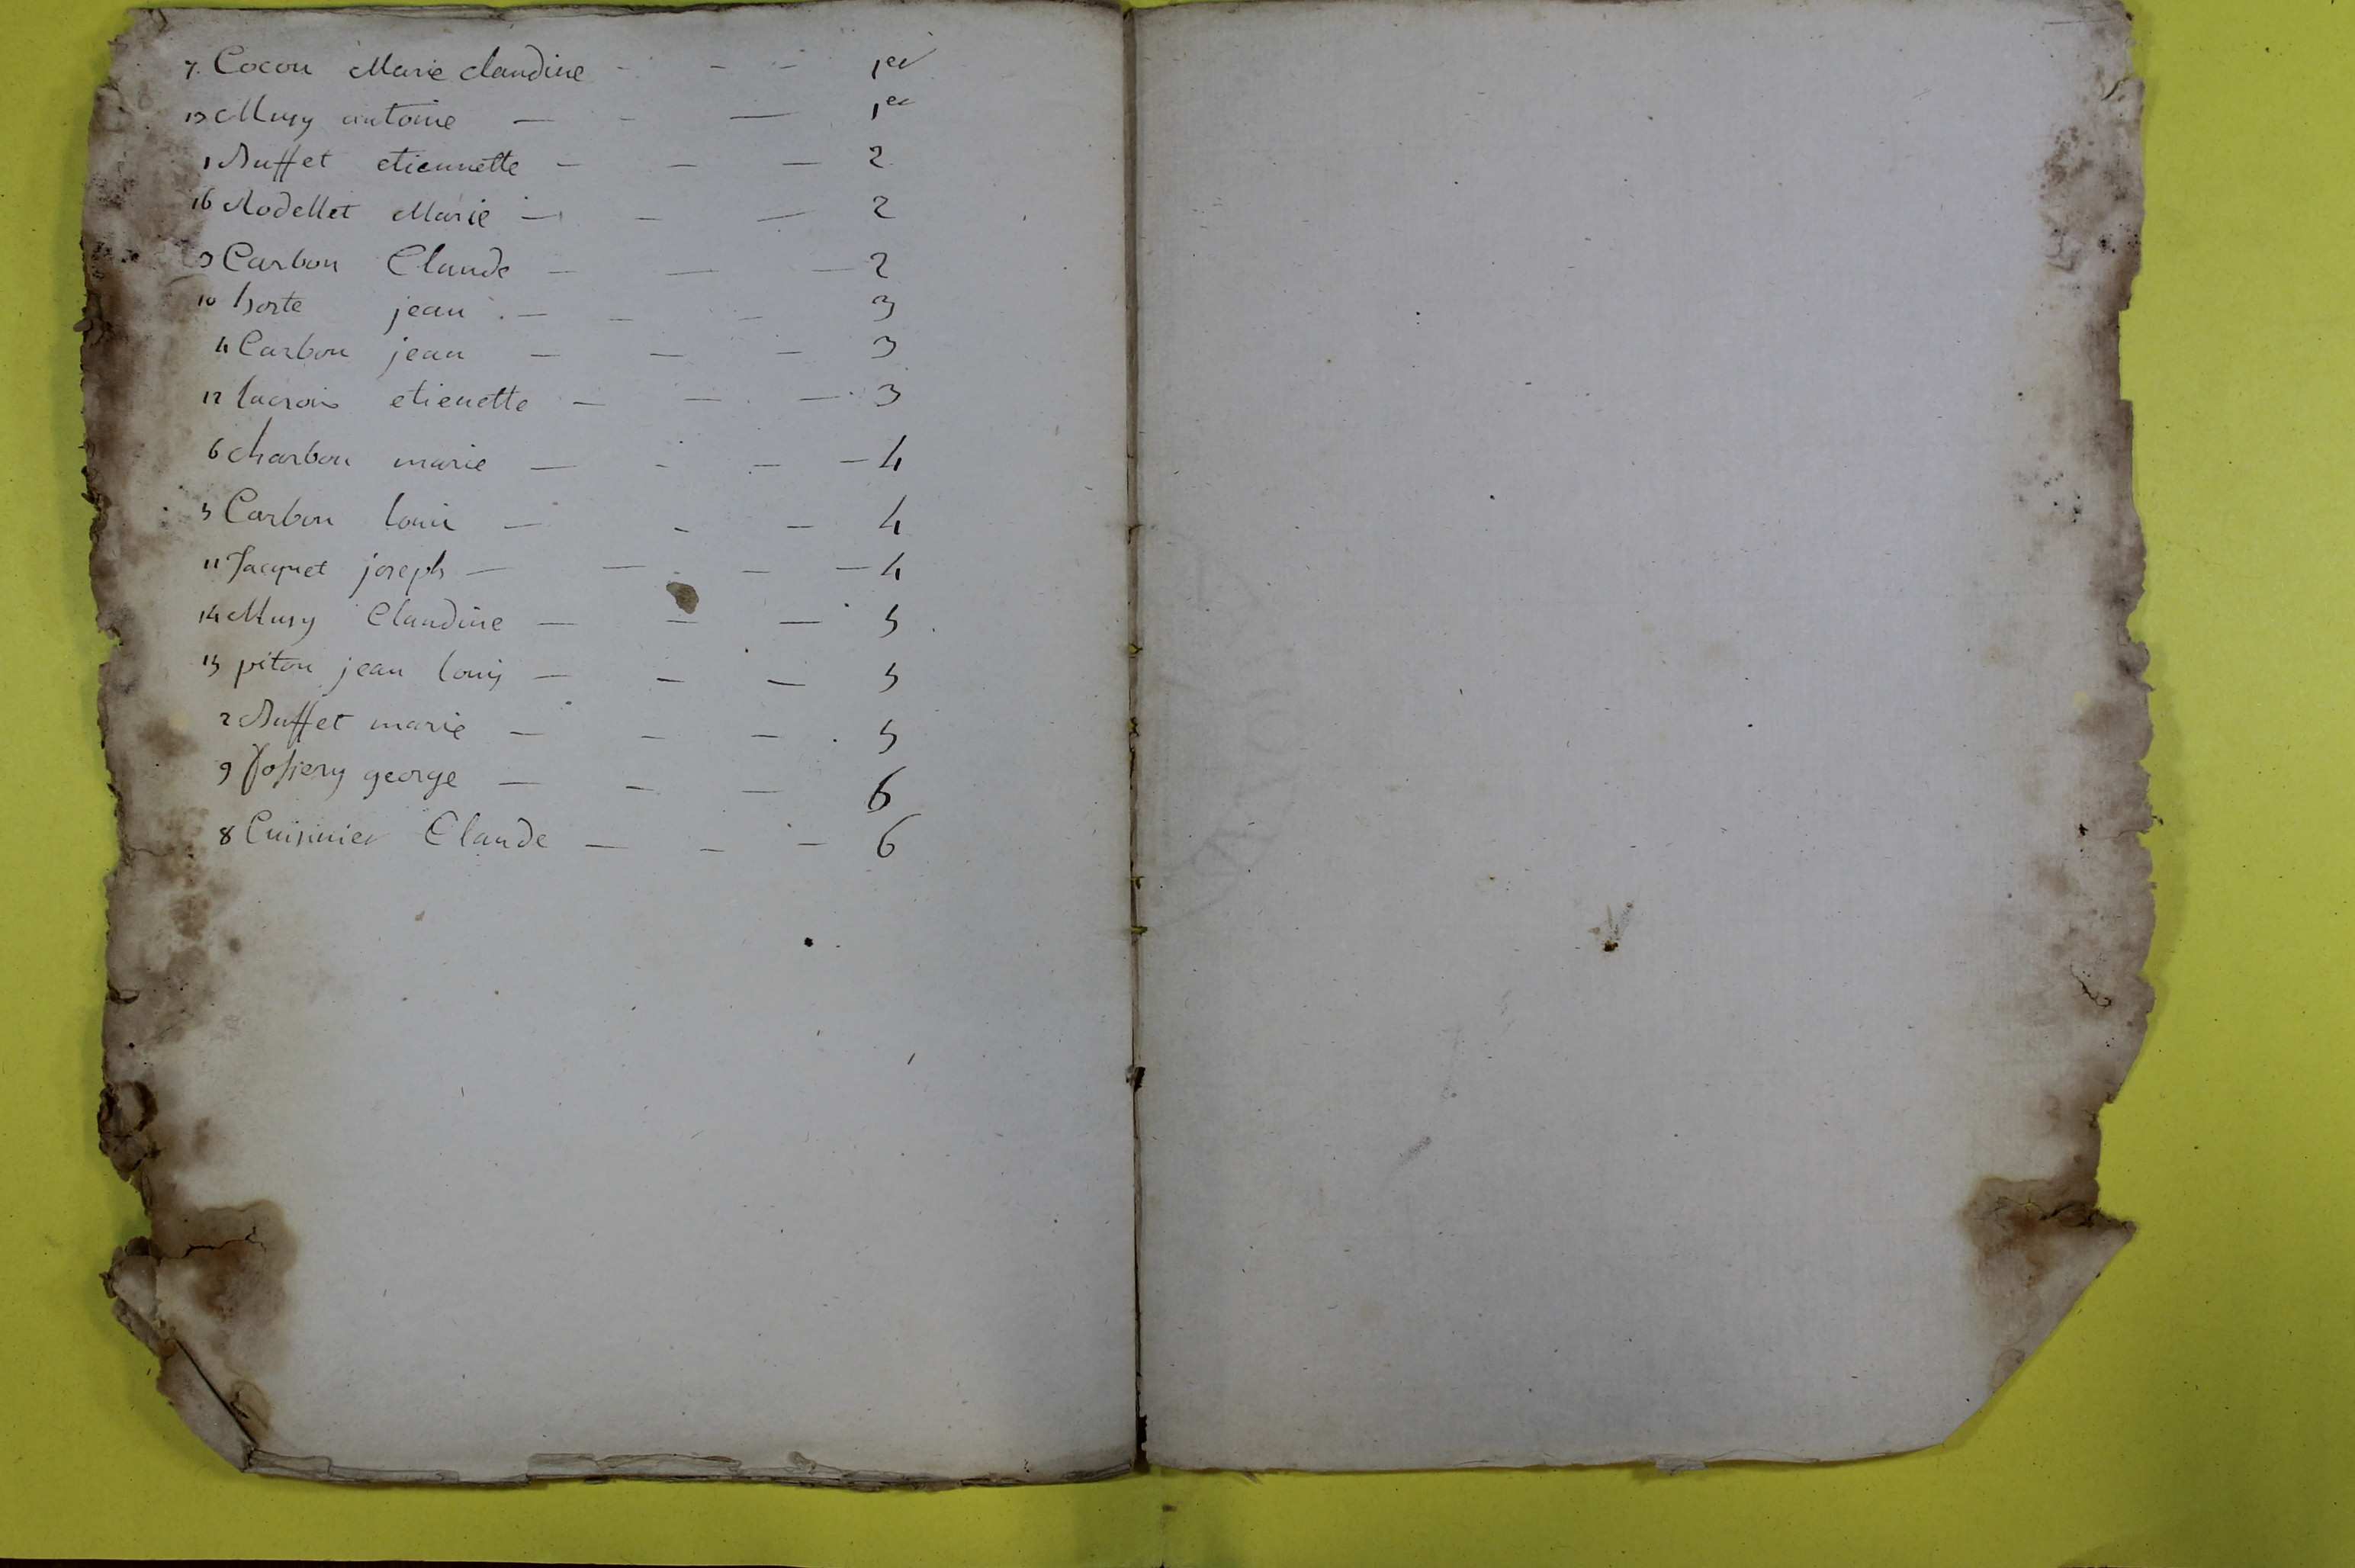 7. Cocou Marie Claudine - - - 1er
13 Musy antoine - - - 1er
1 Buffet etiennette - - - 2
16 Rodellet Marie - - - 2
3 Carbon Claude - - - 2
10 horte jean - - - 3
4 Carbon jean - - - 3
12 lacroix etienette - - - 3
6 charbon marie - - - - 4
5 Carbon louis - - - 4
11 Jacquet joseph - - - - 4
14 Musy Claudine - - - 5
15 piton jean louis - - - 5
2 Buffet marie - - - 5
9 george - - - 6
8 Cuisinier Claude - - - 6